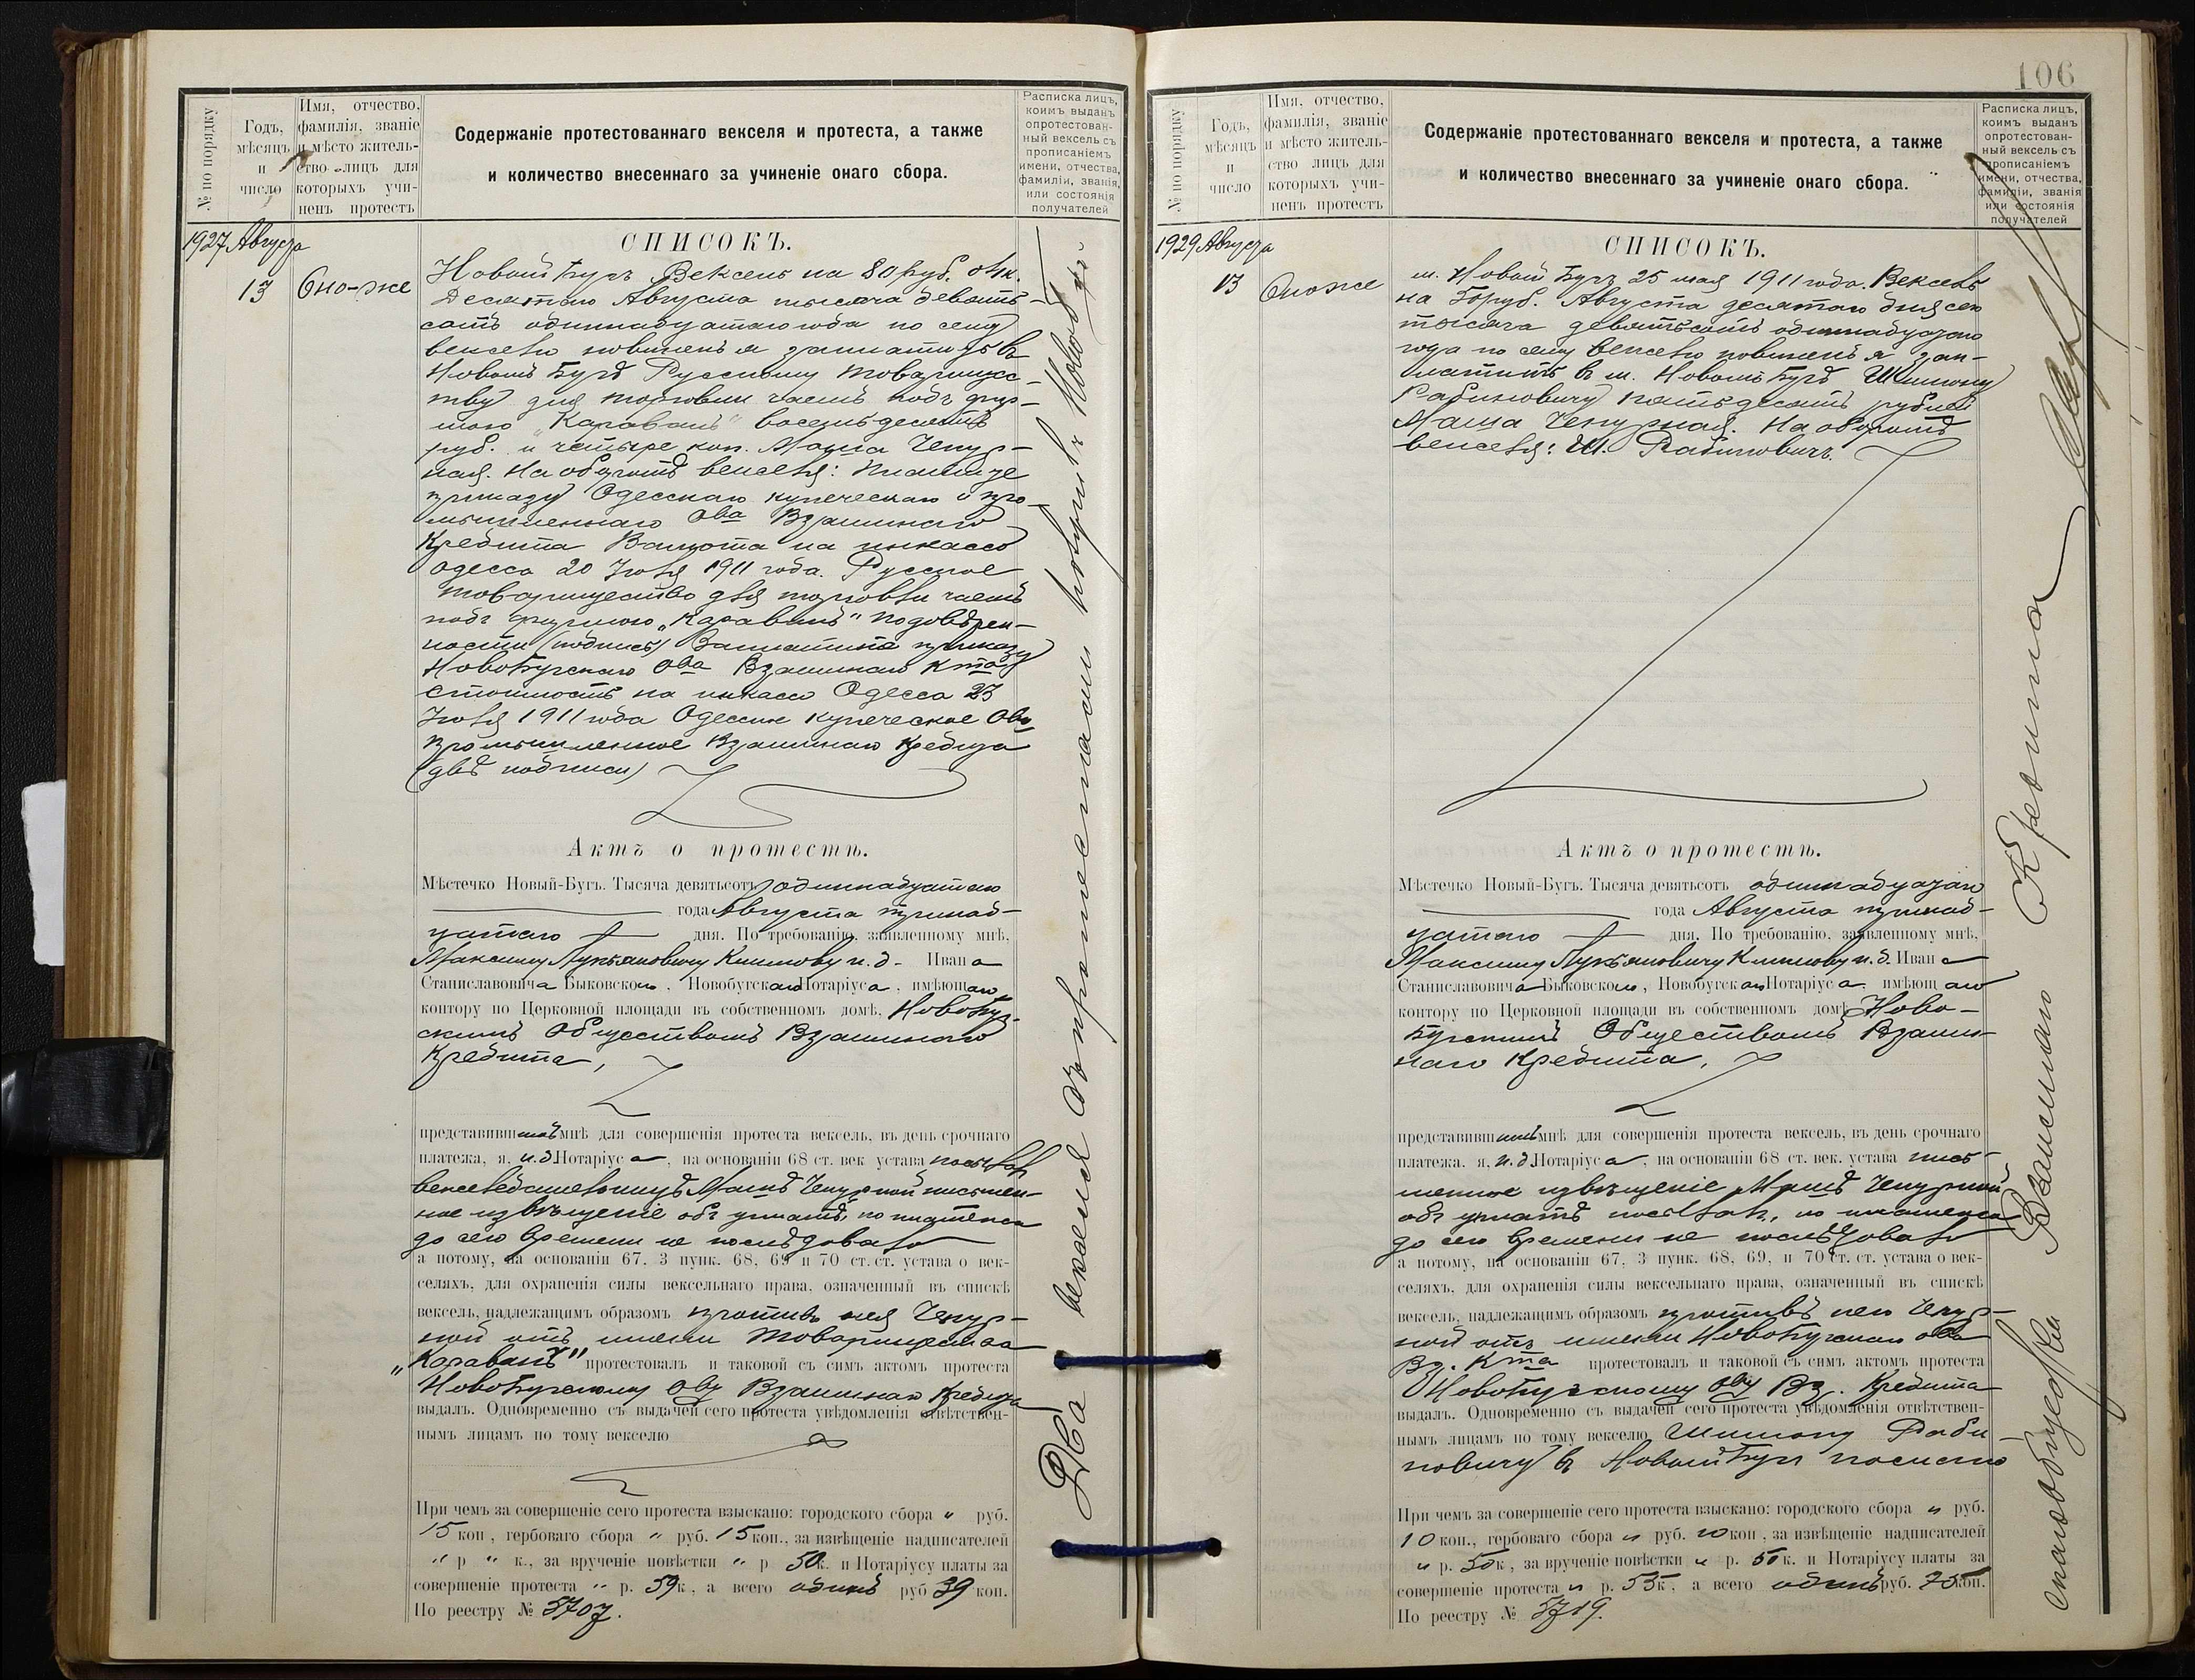 № по порядку
Годъ,
мѣсяцъ
и
число
Имя, отчество,
фамилія, званіе
и мѣсто житель-
ство лицъ для
которыхъ учи-
ненъ протестъ
Содержаніе протестованнаго векселя и протеста, а также
и количество внесеннаго за учиненіе онаго сбора.
Расписка лицъ,
коимъ выданъ
опротестован-
ный вексель съ
прописаніемъ
имени, отчества,
фамиліи, званія,
или состоянія
получателей
1927 Августа
13 Оно-же
СПИСОКЪ.
Новый Бугъ Вексель на 80 руб. 04 к.
Десятаго Августа тысяча девять-
сотъ одиннадцатаго года по сему
векселю повиненъ я заплатить въ
Новомъ Бугѣ Русскому Товарищес-
тву для торговли чаемъ подъ фир-
мою "Караванъ" восемьдесятъ
руб. и четыре коп. Маша Чепур-
ная. На оборотѣ векселя: Платите
приказу Одесскаго купеческаго и про-
мышленнаго О-ва Взаимнаго
Кредита Валюта на инкассо
Одесса 20 Іюля 1911 года. Русское
товарищество для торговли чаемъ
подъ фирмою "Караванъ" по довѣрен-
ности (подпись) Заплатите приказу
Новобугскаго О-ва Взаимнаго К-та
стоимость на инкассо Одесса 23
Іюля 1911 года Одесское купеческое О-во
промышленное Взаимнаго Кредита
(двѣ подписи)
Актъ о протестѣ.
Мѣстечко Новый-Бугъ. Тысяча девятьсотъ одиннадцатаго
года Августа тринад-
цатаго дня. По требованію, заявленному мнѣ,
Максиму Лукьяновичу Климову и. д. Ивана
Станиславовича Быковскаго, Новобугскаго Нотаріуса, имѣющаго
контору по Церковной площади въ собственномъ домѣ, Новобуг-
скимъ Обществомъ Взаимнаго
Кредита,
представившимъ мнѣ для совершенія протеста вексель, въ день срочнаго
платежа, я, и.д. Нотаріуса, на основаніи 68 ст. век устава послалъ
векселедательницѣ Машѣ Чепурной письмен-
ное извѣщеніе объ уплатѣ, но платежа
до сего времени не послѣдовало
а потому, на основаніи 67, 3 пунк. 68, 69 и 70 ст. ст. устава о век-
селяхъ, для охраненія силы вексельнаго права, означенный въ спискѣ
вексель, надлежащимъ образомъ противъ нея Чепур-
ной отъ имени Товарищества
"Караванъ" протестовалъ и таковой съ симъ актомъ протеста
Новобугскому О-ву Взаимнаго Кредита
выдалъ. Одновременно съ выдачей сего протеста увѣдомленія отвѣтствен-
нымъ лицамъ по тому векселю
При чемъ за совершеніе сего протеста взыскано: городского сбора " руб.
15 коп, гербоваго сбора " руб. 15 коп., за извѣщеніе надписателей
" р " к., за врученіе повѣстки " р 50 к. и Нотаріусу платы за
совершеніе протеста " р. 59 к, а всего одинъ руб 39 коп.
По реестру № 5707.
Два векселя съ протестами получилъ
106
№ по порядку
Годъ,
мѣсяцъ
и
число
Имя, отчество,
фамилія, званіе
и мѣсто житель-
ство лицъ для
которыхъ учи-
ненъ протестъ
Содержаніе протестованнаго векселя и протеста, а также
и количество внесеннаго за учиненіе онаго сбора.
Расписка лицъ,
коимъ выданъ
опротестован-
ный вексель съ
прописаніемъ
имени, отчества,
фамиліи, званія
или состоянія
получателей
1929 Августа
13 Оно же
СПИСОКЪ.
м. Новый Бугъ 25 мая 1911 года. Вексель
на 50 руб. Августа десятаго дня сего
тысяча девятьсотъ одиннадцатаго
года по сему векселю повиненъ я зап-
латить въ м. Новомъ Бугѣ Шимону
Рабиновичу пятьдесятъ рублей
Маша Чепурная. На оборотѣ
векселя: Ш. Рабиновичъ.
Актъ о протестѣ.
Мѣстечко Новый-Бугъ. Тысяча девятьсотъ одиннадцатаго
года Августа тринад-
цатаго дня. По требованію, заявленному мнѣ,
Максиму Лукьяновичу Климову и.д. Ивана
Станиславовича Быковскаго, Новобугскаго Нотаріуса, имѣющаго
контору по Церковной площади въ собственномъ домѣ, Ново-
бугскимъ Обществомъ Взаим-
наго Кредита,
представившимъ мнѣ для совершенія протеста вексель, въ день срочнаго
платежа. я, и.д. Нотаріуса, на основаніи 68 ст. век. устава пись-
менное извѣщеніе Машѣ Чепурной
объ уплатѣ послалъ, но платежа
до сего времени не послѣдовало
а потому, на основаніи 67, 3 пунк. 68, 69, и 70 ст. ст. устава о век-
селяхъ, для охраненія силы вексельнаго права, означенный въ спискѣ
вексель, надлежащимъ образомъ противъ нею Чепур-
ной отъ имени Новобугскаго О-ва
Вз. К-та протестовалъ и таковой съ симъ актомъ протеста
Новобугскому О-ву Вз. Кредита
выдалъ. Одновременно съ выдачей сего протеста увѣдомленія отвѣтствен-
нымъ лицамъ по тому векселю Шимону Раби-
новичу въ Новый Бугъ послано
При чемъ за совершеніе сего протеста взыскано: городского сбора " руб.
10 коп., гербоваго сбора " руб. 10 коп, за извѣщеніе надписателей
" р. 50 к, за врученіе повѣстки " р. 50 к. и Нотаріусу платы за
совершеніе протеста " р. 55 к, а всего одинъ руб. 75 коп.
По реестру № 5719.
Взаимнаго Кредита